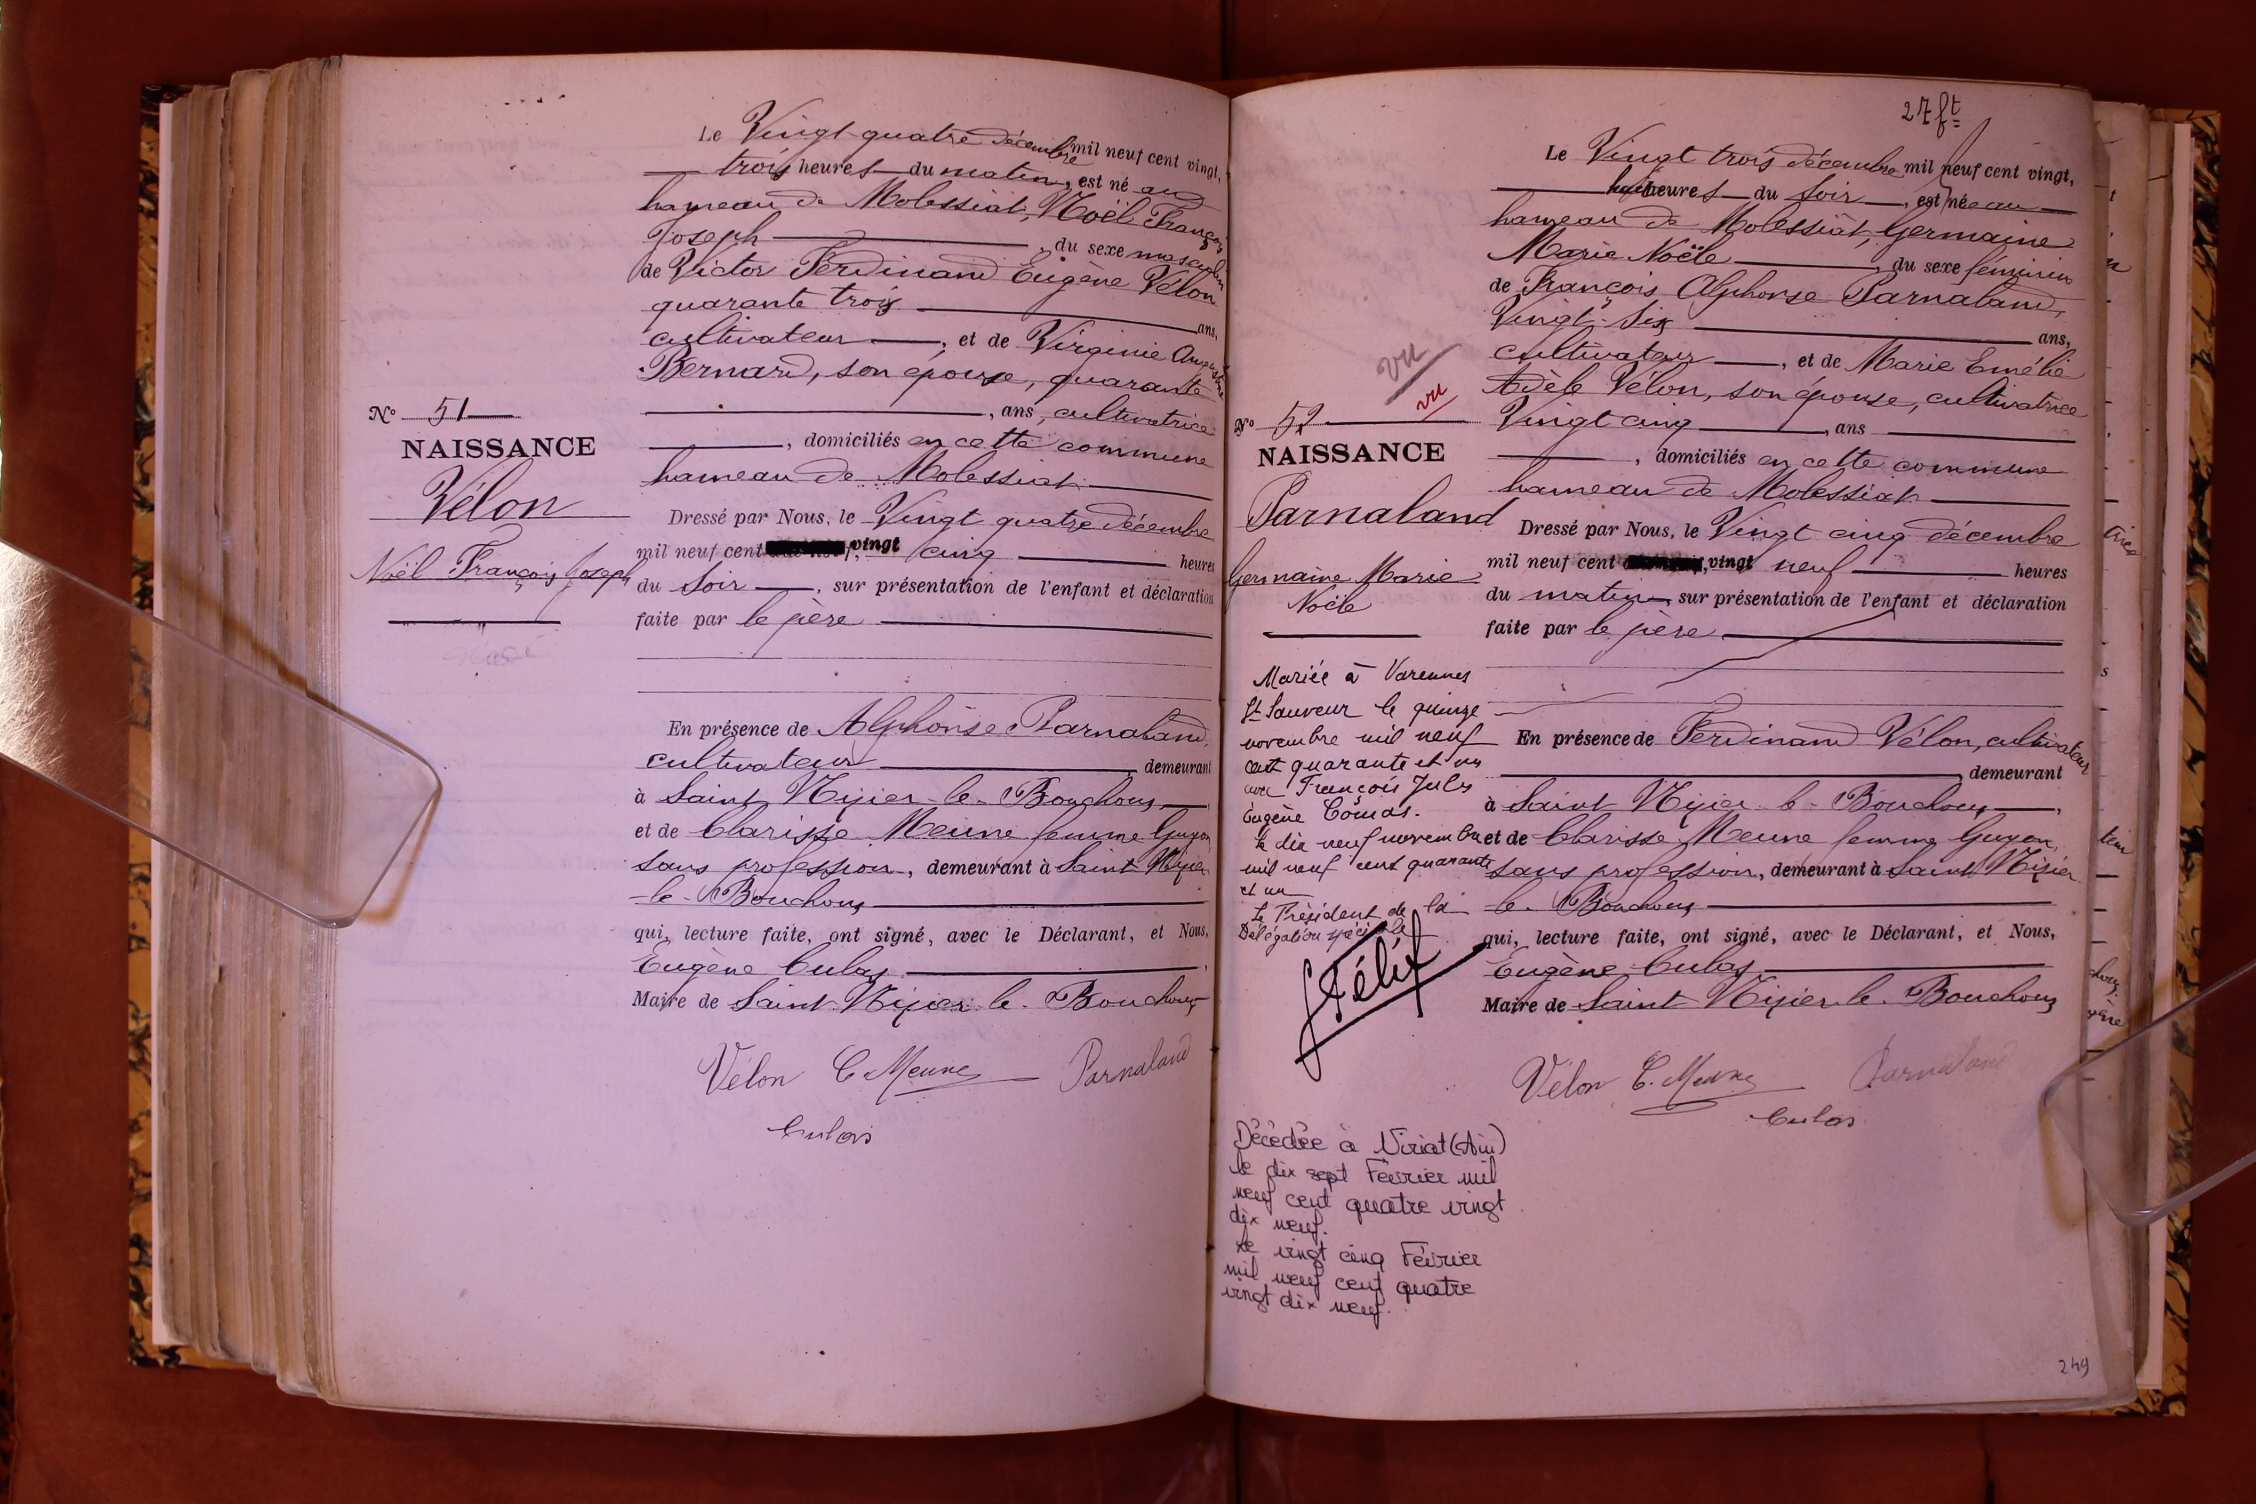 Le Vingt quatre décembre mil neuf cent vingt,
trois heures du matin, est né au
hameau de Molessiat, Noël François
Joseph, du sexe masculin
de Victor Ferdinand Eugène Vélon
quarante trois ans,
cultivateur, et de Virginie Augustine
Bernard, son épouse, quarante
, ans, cultivatrice
N° 51
NAISSANCE
Vélon
Noël François Joseph
, domiciliés en cette commune
hameau de Molessiat
Dressé par Nous, le Vingt quatre décembre
mil neuf cent vingt cinq heures
du soir, sur présentation de l'enfant et déclaration
faite par le père
En présence de Alphonse Parnaland,
cultivateur demeurant
à Saint Nizier-le-Bouchoux,
et de Clarisse Meune femme Guyon
sans profession, demeurant à Saint Nizier
-le-Bouchoux
qui, lecture faite, ont signé, avec le Déclarant, et Nous,
Eugène Culas,
Maire de Saint-Nizier-le-Bouchoux
Vélon C. Meune Parnaland
Culas
27 ft
Le Vingt trois décembre mil neuf cent vingt,
huit heures du soir, est née au
hameau de Molessiat, Germaine
Marie Noële, du sexe féminin
de François Alphonse Parnaland,
Vingt-six ans,
cultivateur, et de Marie Emélie
Adèle Vélon, son épouse, cultivatrice
Vingt cinq, ans
vu
vu
N° 52
NAISSANCE
Parnaland
Germaine Marie
Noële
, domiciliés en cette commune
hameau de Molessiat
Dressé par Nous, le Vingt cinq décembre
mil neuf cent vingt neuf heures
du matin, sur présentation de l'enfant et déclaration
faite par le père
Mariée à Varennes
St Sauveur le quinze
novembre mil neuf
cent quarante et un
avec François Jules
Eugène
le dix neuf novembre
mil neuf cent quarante
et un
Le Président de la
Délégation spéciale
Félix
En présence de Ferdinand Vélon, cultivateur
demeurant
à Saint Nizier-le-Bouchoux,
et de Clarisse Meune femme Guyon,
sans profession, demeurant à Saint Nizier
le-Bouchoux
qui, lecture faite, ont signé, avec le Déclarant, et Nous,
Eugène Culas
Maire de Saint-Nizier-le-Bouchoux
Vélon C. Meune Parnaland
Culas
Décédée à Viriat (Ain)
le dix sept Février mil
neuf cent quatre vingt
dix neuf.
le vingt cinq Février
mil neuf cent quatre
vingt dix neuf.
249